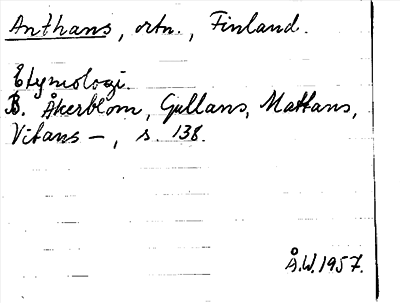 Anthans, ortn., Finland.
Etymologi.
B. Åkerblom, Gullans, Mattans,
Vitans –, s. 138.
Å.W. 1957.